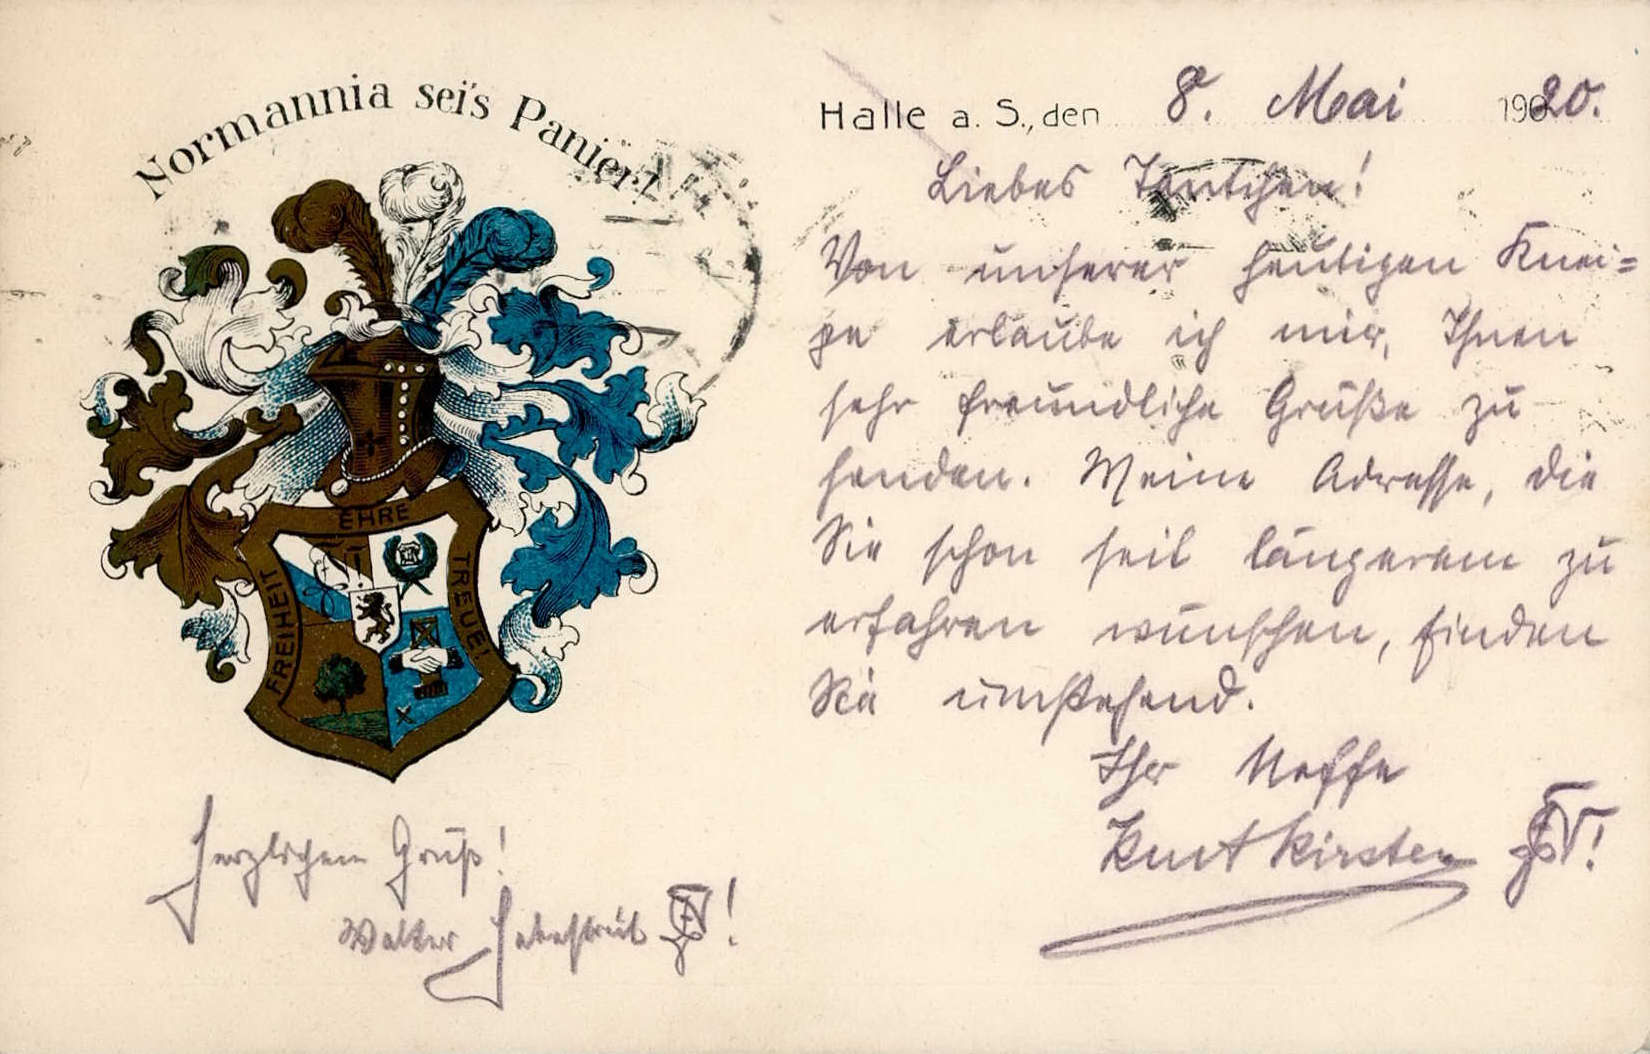 Normannia sei's Panier!
EHRE
FREIHEIT
TREUE!
Halle a. S., den 8. Mai 1920.
Liebes Tantchen!
Von unserer heutigen Knei=
pe erlaube ich mir, Ihnen
sehr freundliche Grüße zu
senden. Meine Adresse, die
Sie schon seit längerem zu
erfahren wünschen, finden
Sie umstehend.
Ihr Neffe
Kurt Kirsten
Herzlichen Gruß!
Walter